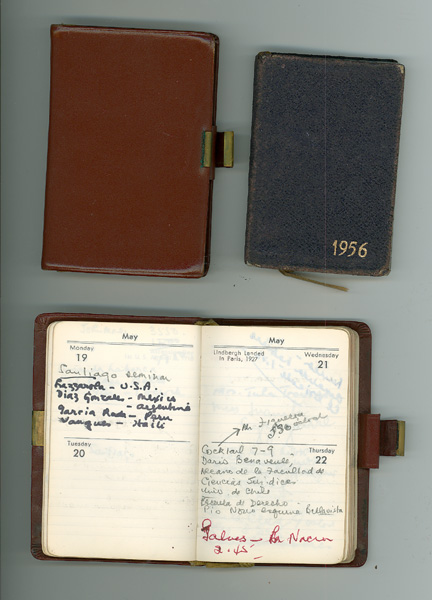 1956
May
Monday
19
Santiago seminar
U.S.A.
Diaz Gonzalez - Mexico
Garcia Rada - Peru
Vasquez - Haiti
Tuesday
20
May
Lindbergh Landed
in Paris, 1927
Wednesday
21
Mr. Figueroa
530
Cocktail 7-9
Thursday
22
Dario Benavente
Decano de la Facultad de
Ciencias Juridicas
Univ. de Chile
Escuela de Derecho
Pio Nono esquina Bellavista
2.45